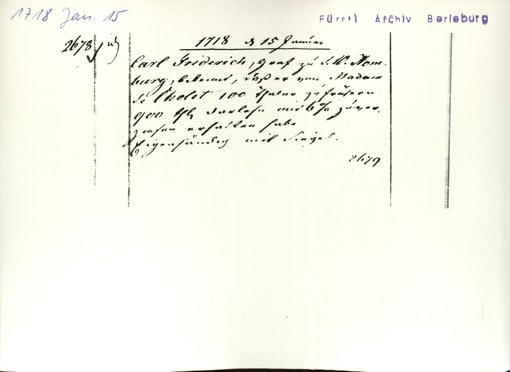 1718 Jan. 15
Fürstl Archiv Berleburg
1718 d 15 Januar
2678
Carl Friderich, Graf zu S. W. Hom-
burg, bekennt, daß er von Madame
de l'holst 100 Thaler zu frühern
900 Thl Darlehn mit 6% zu ver-
zinsen erhalten habe
Eigenhändig mit Siegel.
2679